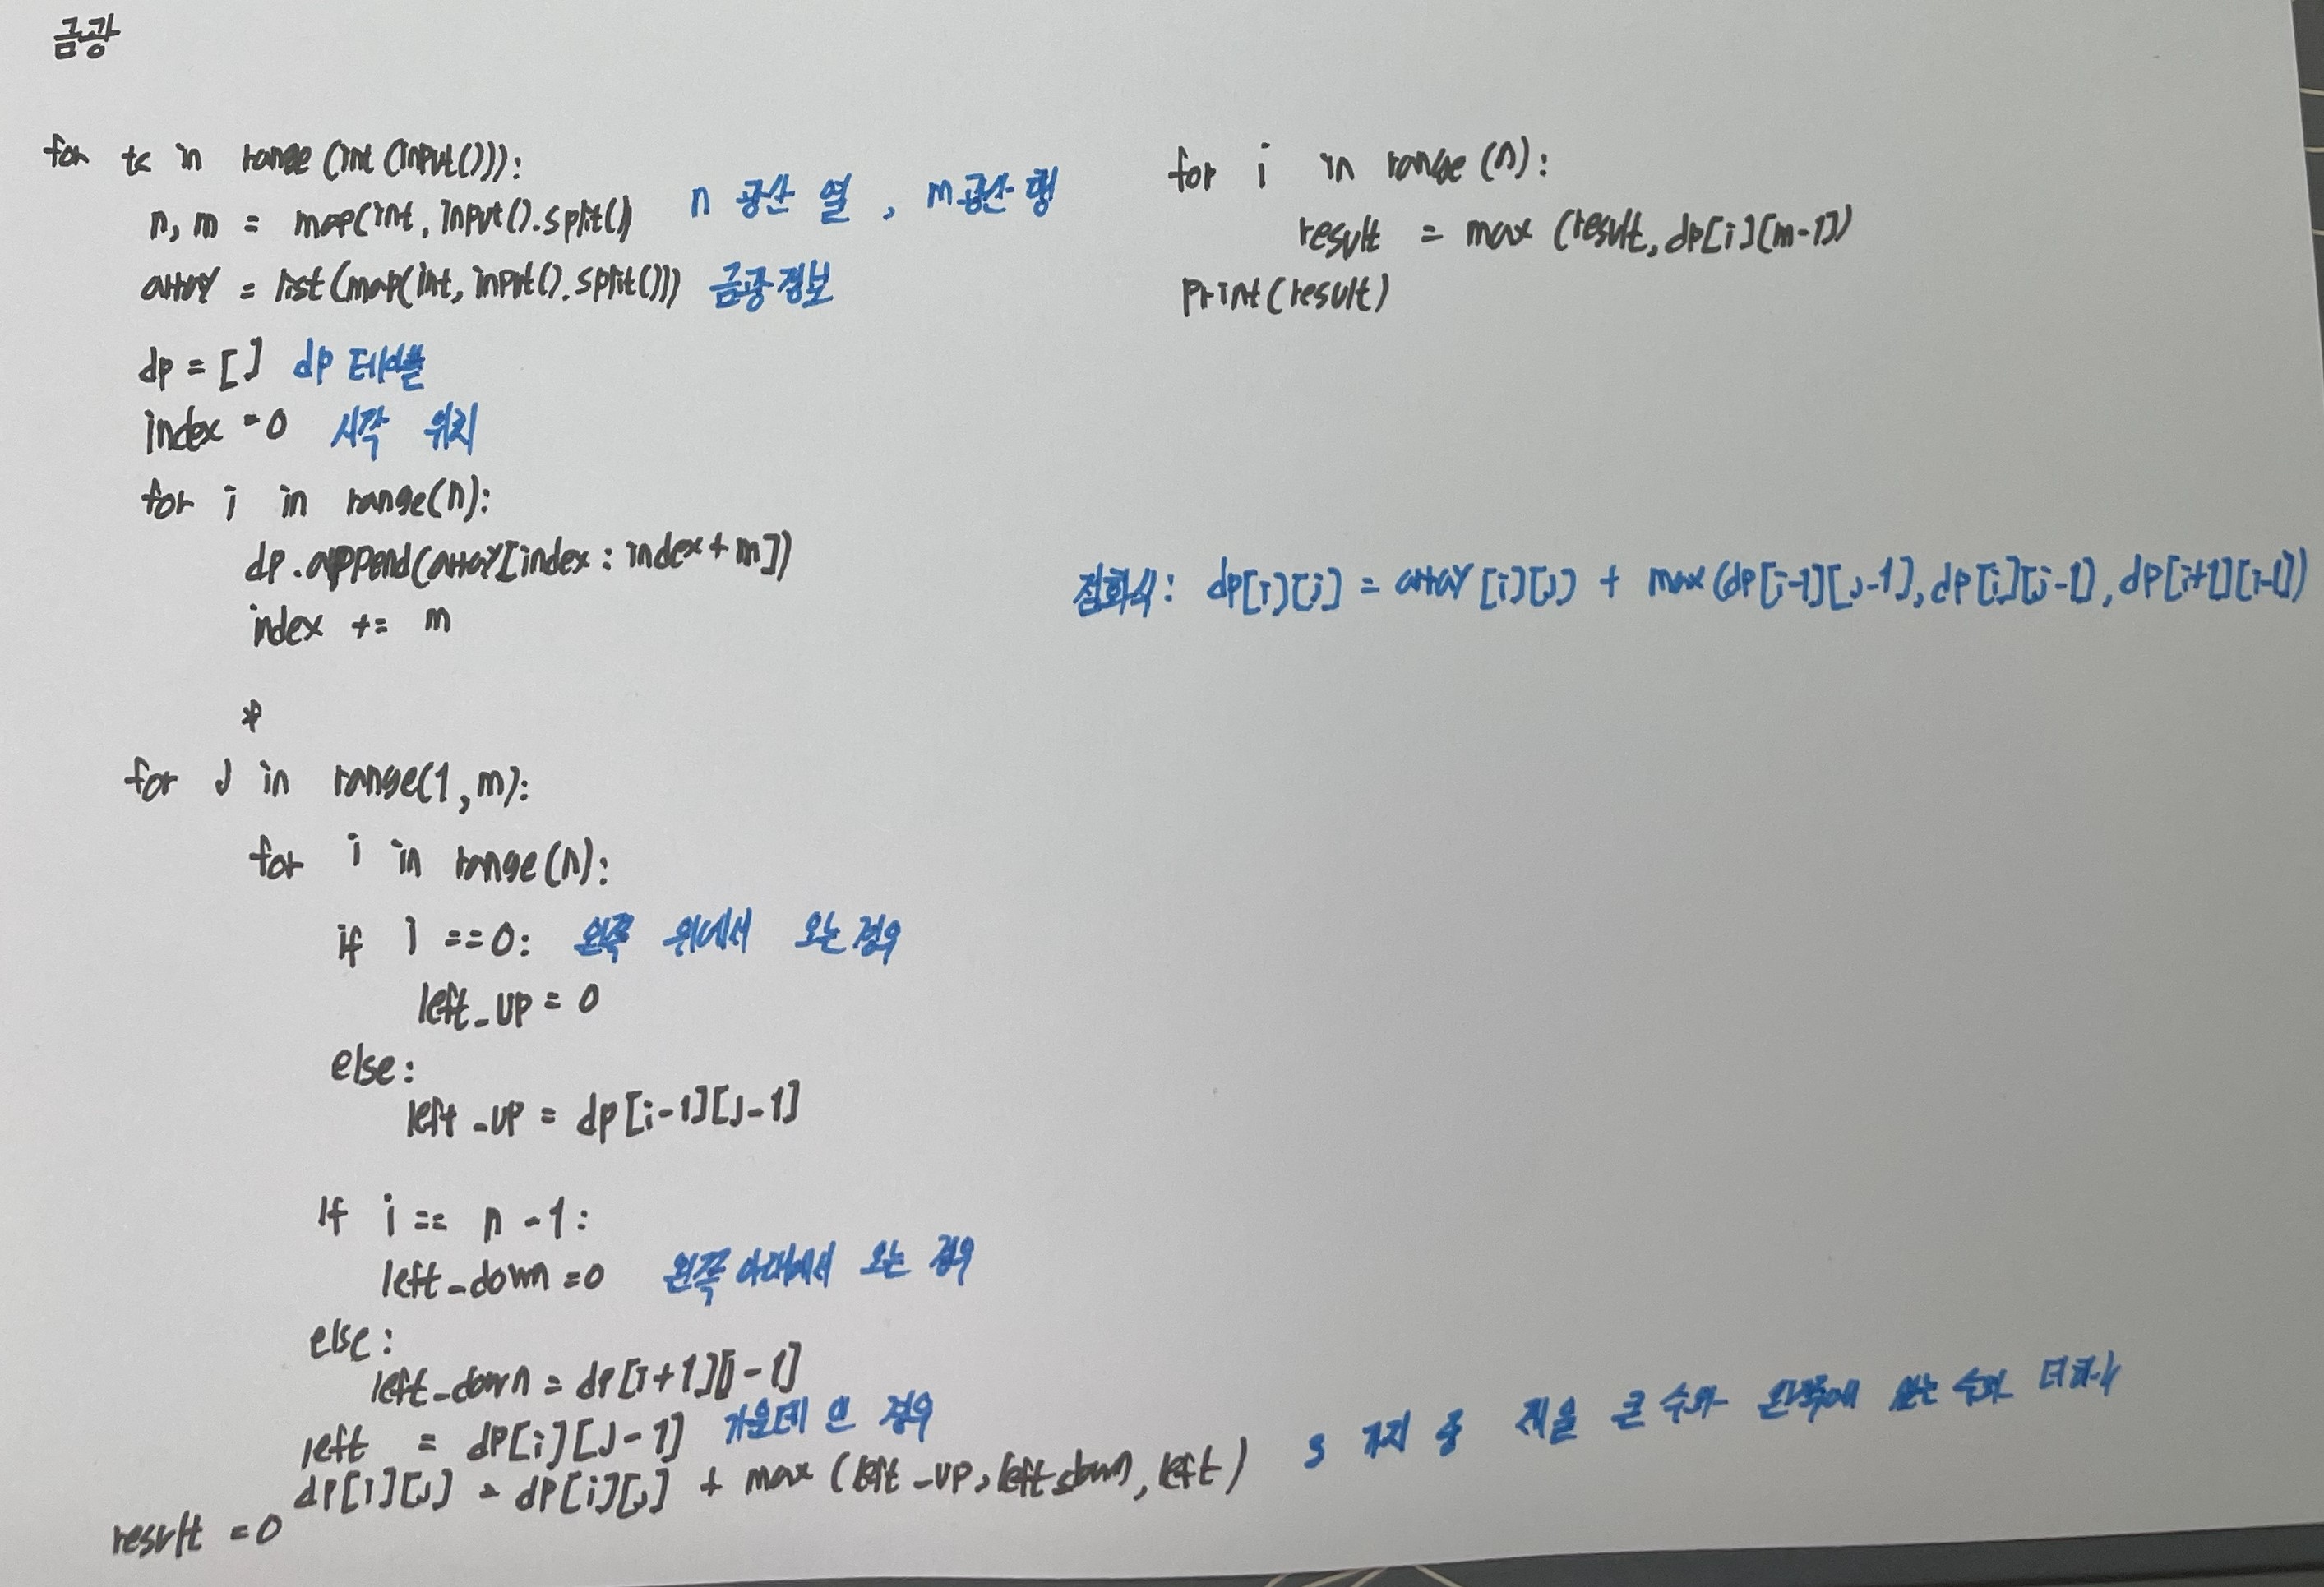 금광
for tc in range (int (input())):
n, m = map(int, input().split() n 광산 열 , m 광산 행
array = list (map(int, input().split())) 금광 정보
dp = [] dp 테이블
index = 0 시작 위치
for i in range(n):
dp.append(array[index : index + m])
index += m
*
for J in range(1, m):
for i in range(n):
if i == 0: 왼쪽 위에서 오는 경우
left_up = 0
else:
left_up = dp[i-1][J-1]
If i == n -1:
left_down = 0 왼쪽 아래에서 오는 경우
else:
left_down = dp[i+1][j-1]
left = dp[i][J-1] 가운데 인 경우
dp[i][J] = dp[i][J] + max (left_up, left_down, left) 3 가지 중 제일 큰 수와 왼쪽에 있는 수과 더하기
result = 0
for i in range (n):
result = max (result, dp[i][m-1])
Print(result)
점화식: dp[i][j] = array [i][J] + max (dp[i-1][J-1], dp[i][j-1], dp[i+1][j-1])